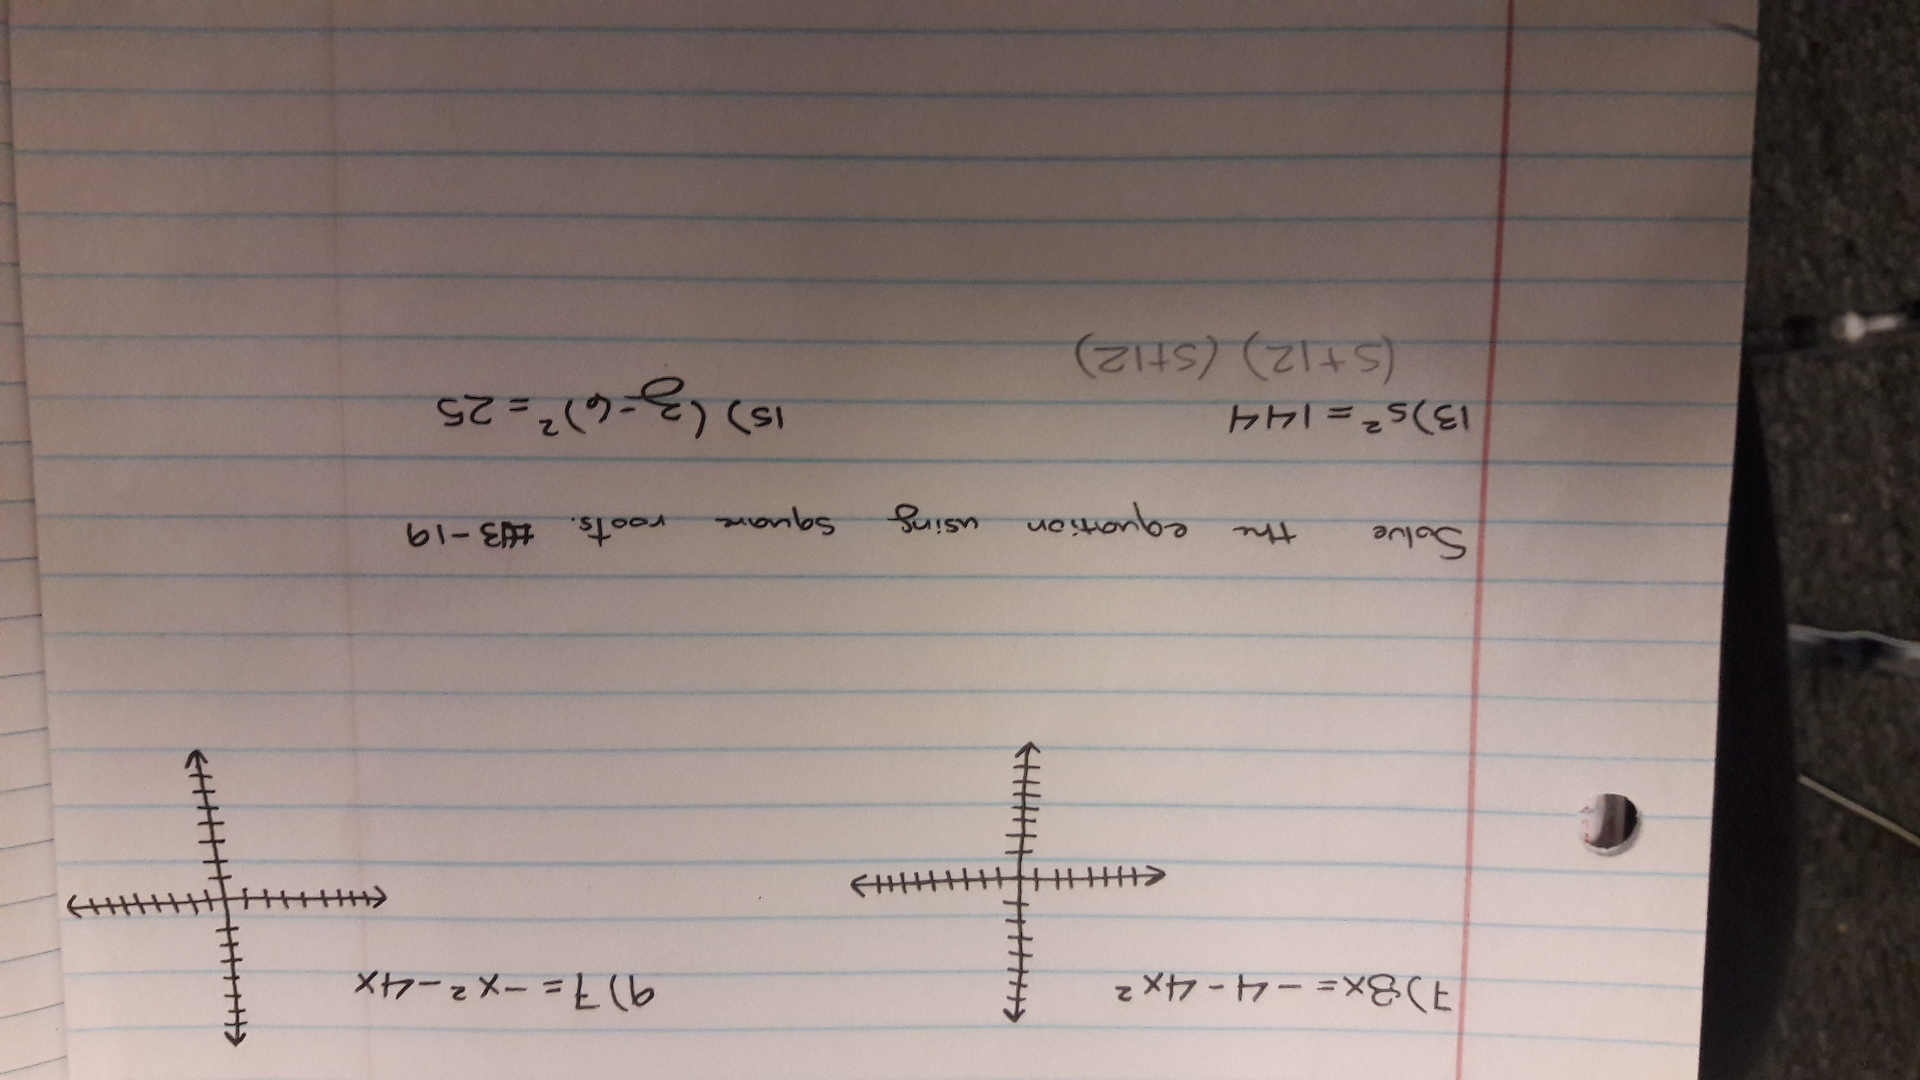 7) 8x = -4 - 4x² 9) 7 = -x² - 4x
Solve the equation using square roots. #13-19
13) s² = 144 15) (z - 6)² = 25
(s+12) (s+12)